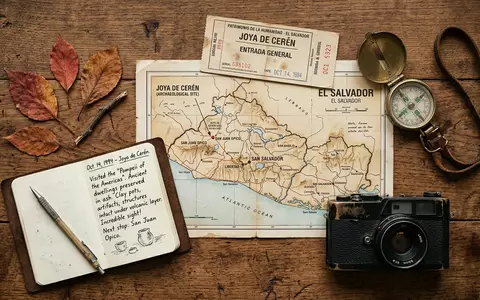 PATRIMONIO DE LA HUMANIDAD - EL SALVADOR
JOYA DE CERÉN
ENTRADA GENERAL
OCT 14, 1994
JOYA DE CERÉN
(ARCHAEOLOGICAL SITE)
EL SALVADOR
EL SALVADOR
SAN JUAN OPICO
SAN JUAN OPICO
SAN SALVADOR
LIBERTAD
ATLANTIC OCEAN
Oct 14, 1994 - Joya de Cerén
Visited the "Pompeii of
the Americas". Ancient
dwellings preserved
in ash. Clay pots,
artifacts, structures
intact under volcanic layer.
Incredible sight!
Next stop: San Juan
Opico.